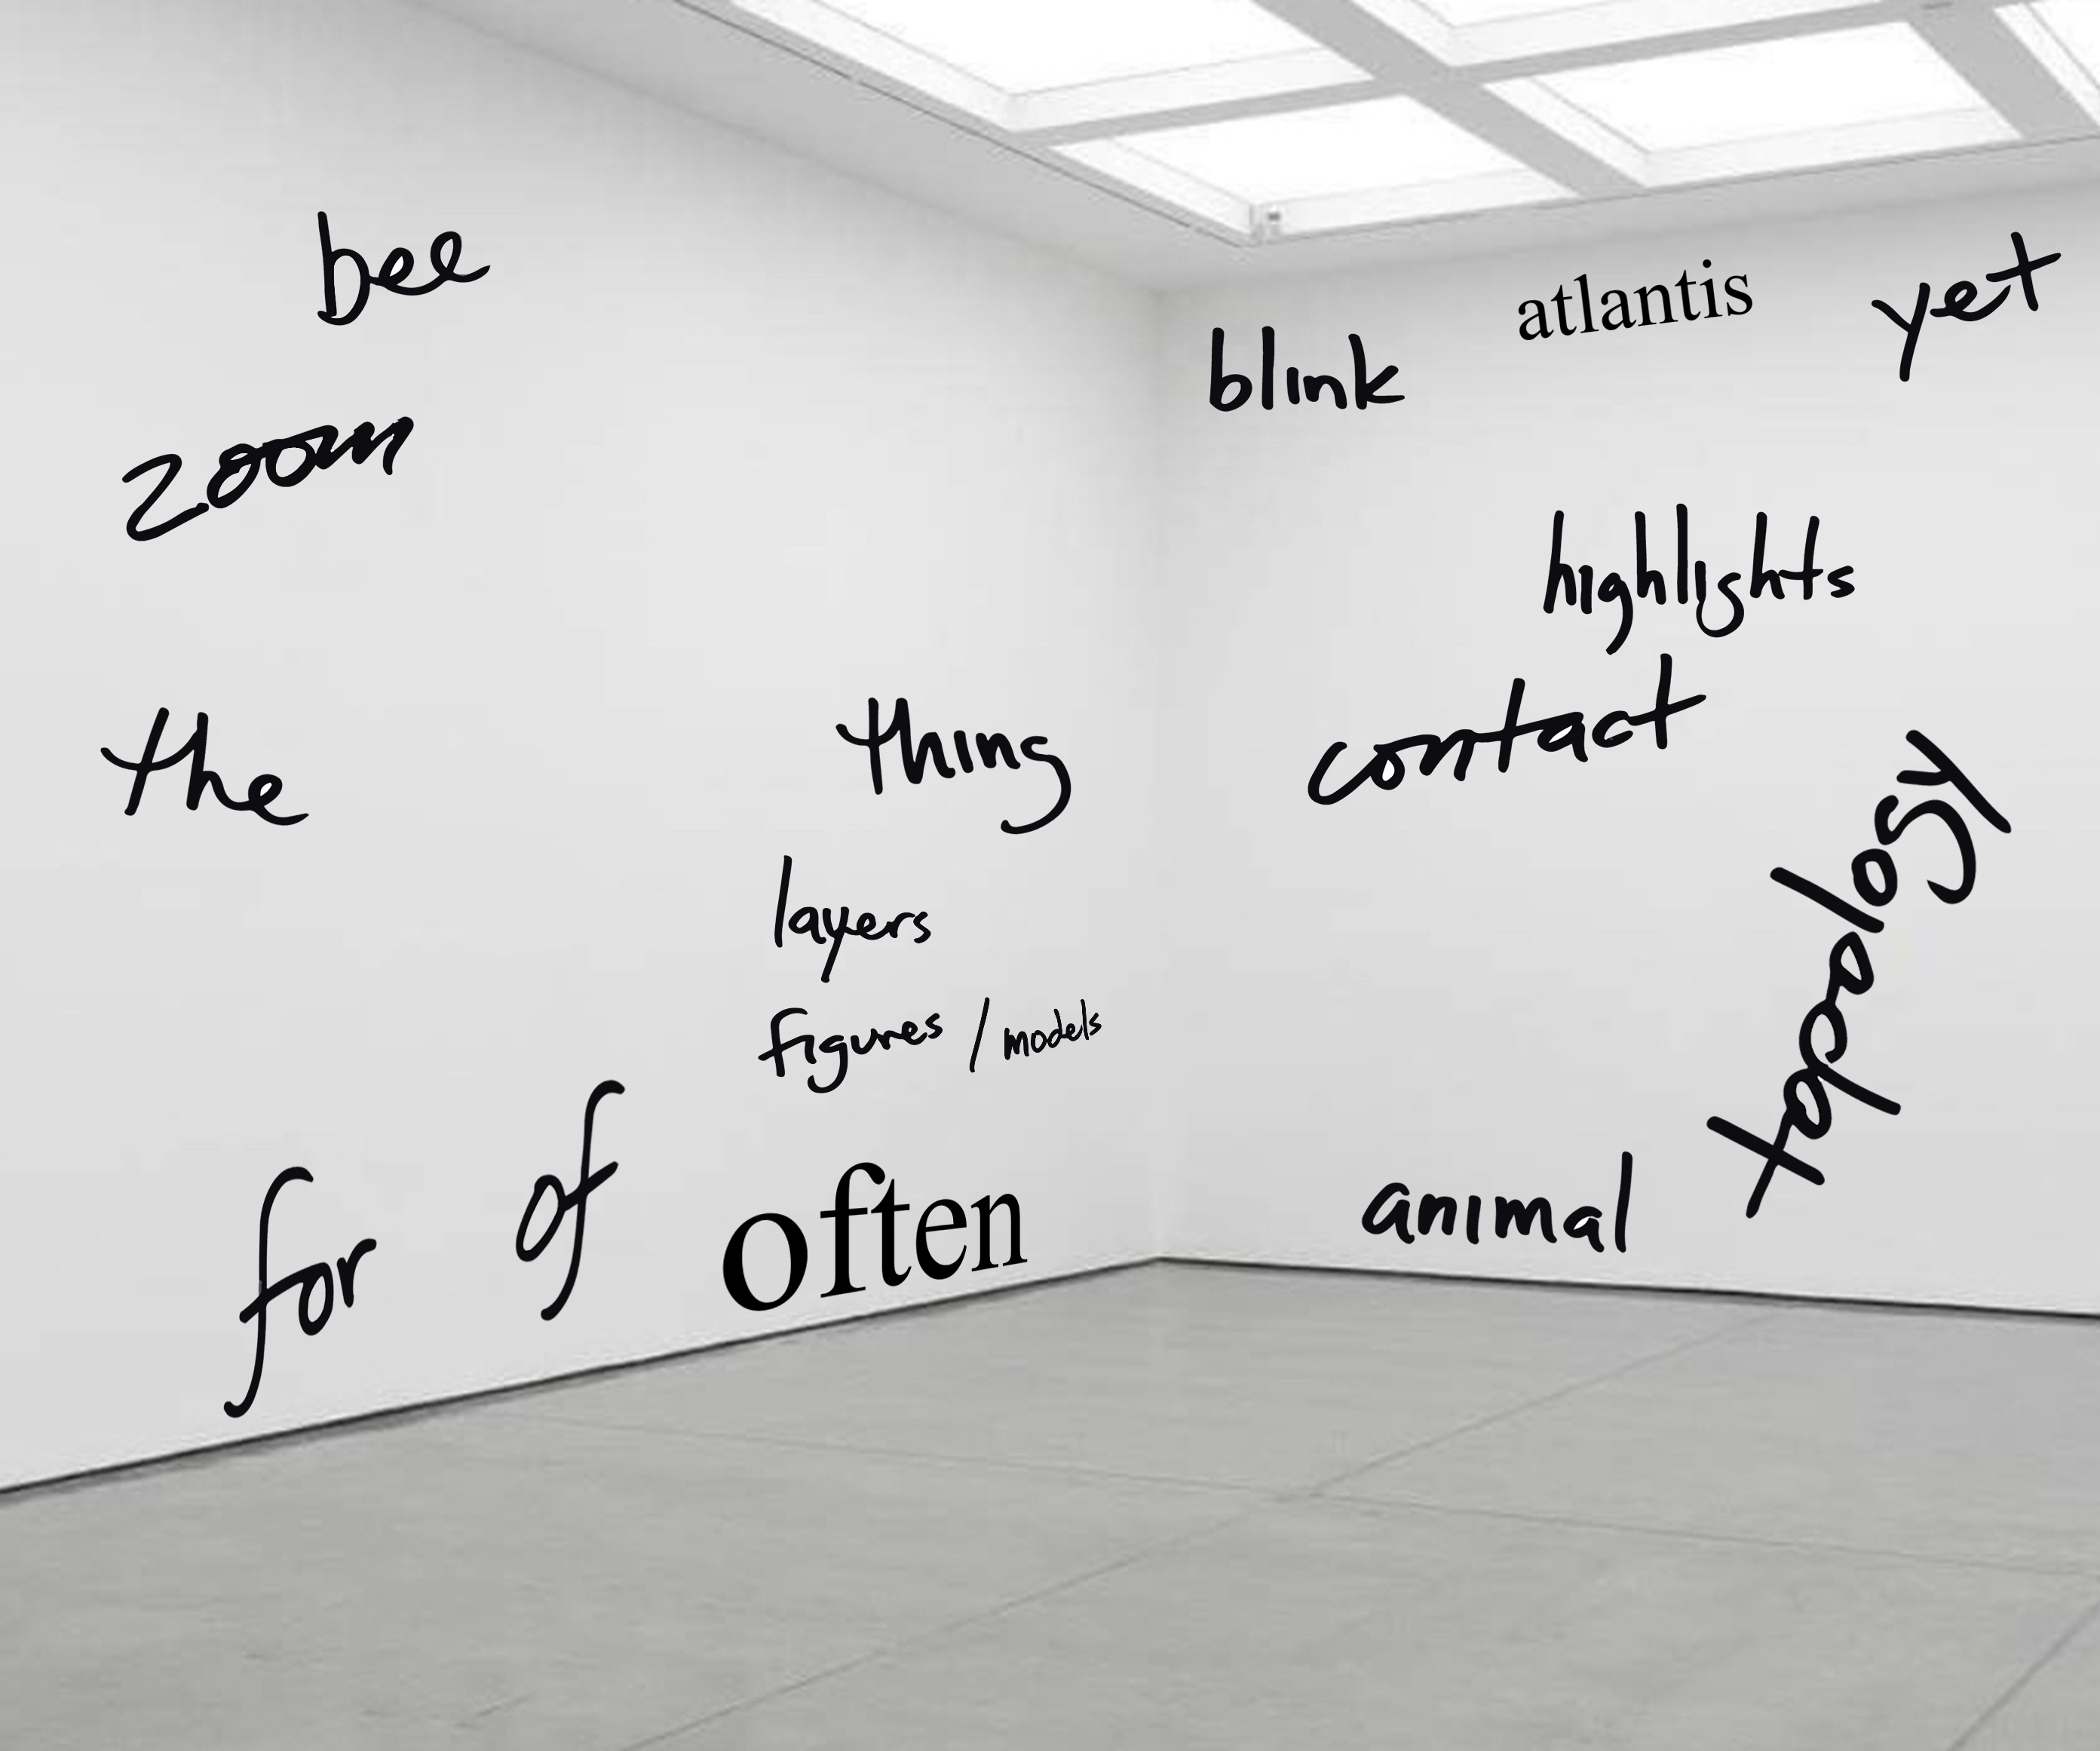 bee
zoom
the
thing
layers
figures / models
for
of
often
blink
atlantis
yet
highlights
contact
topology
animal